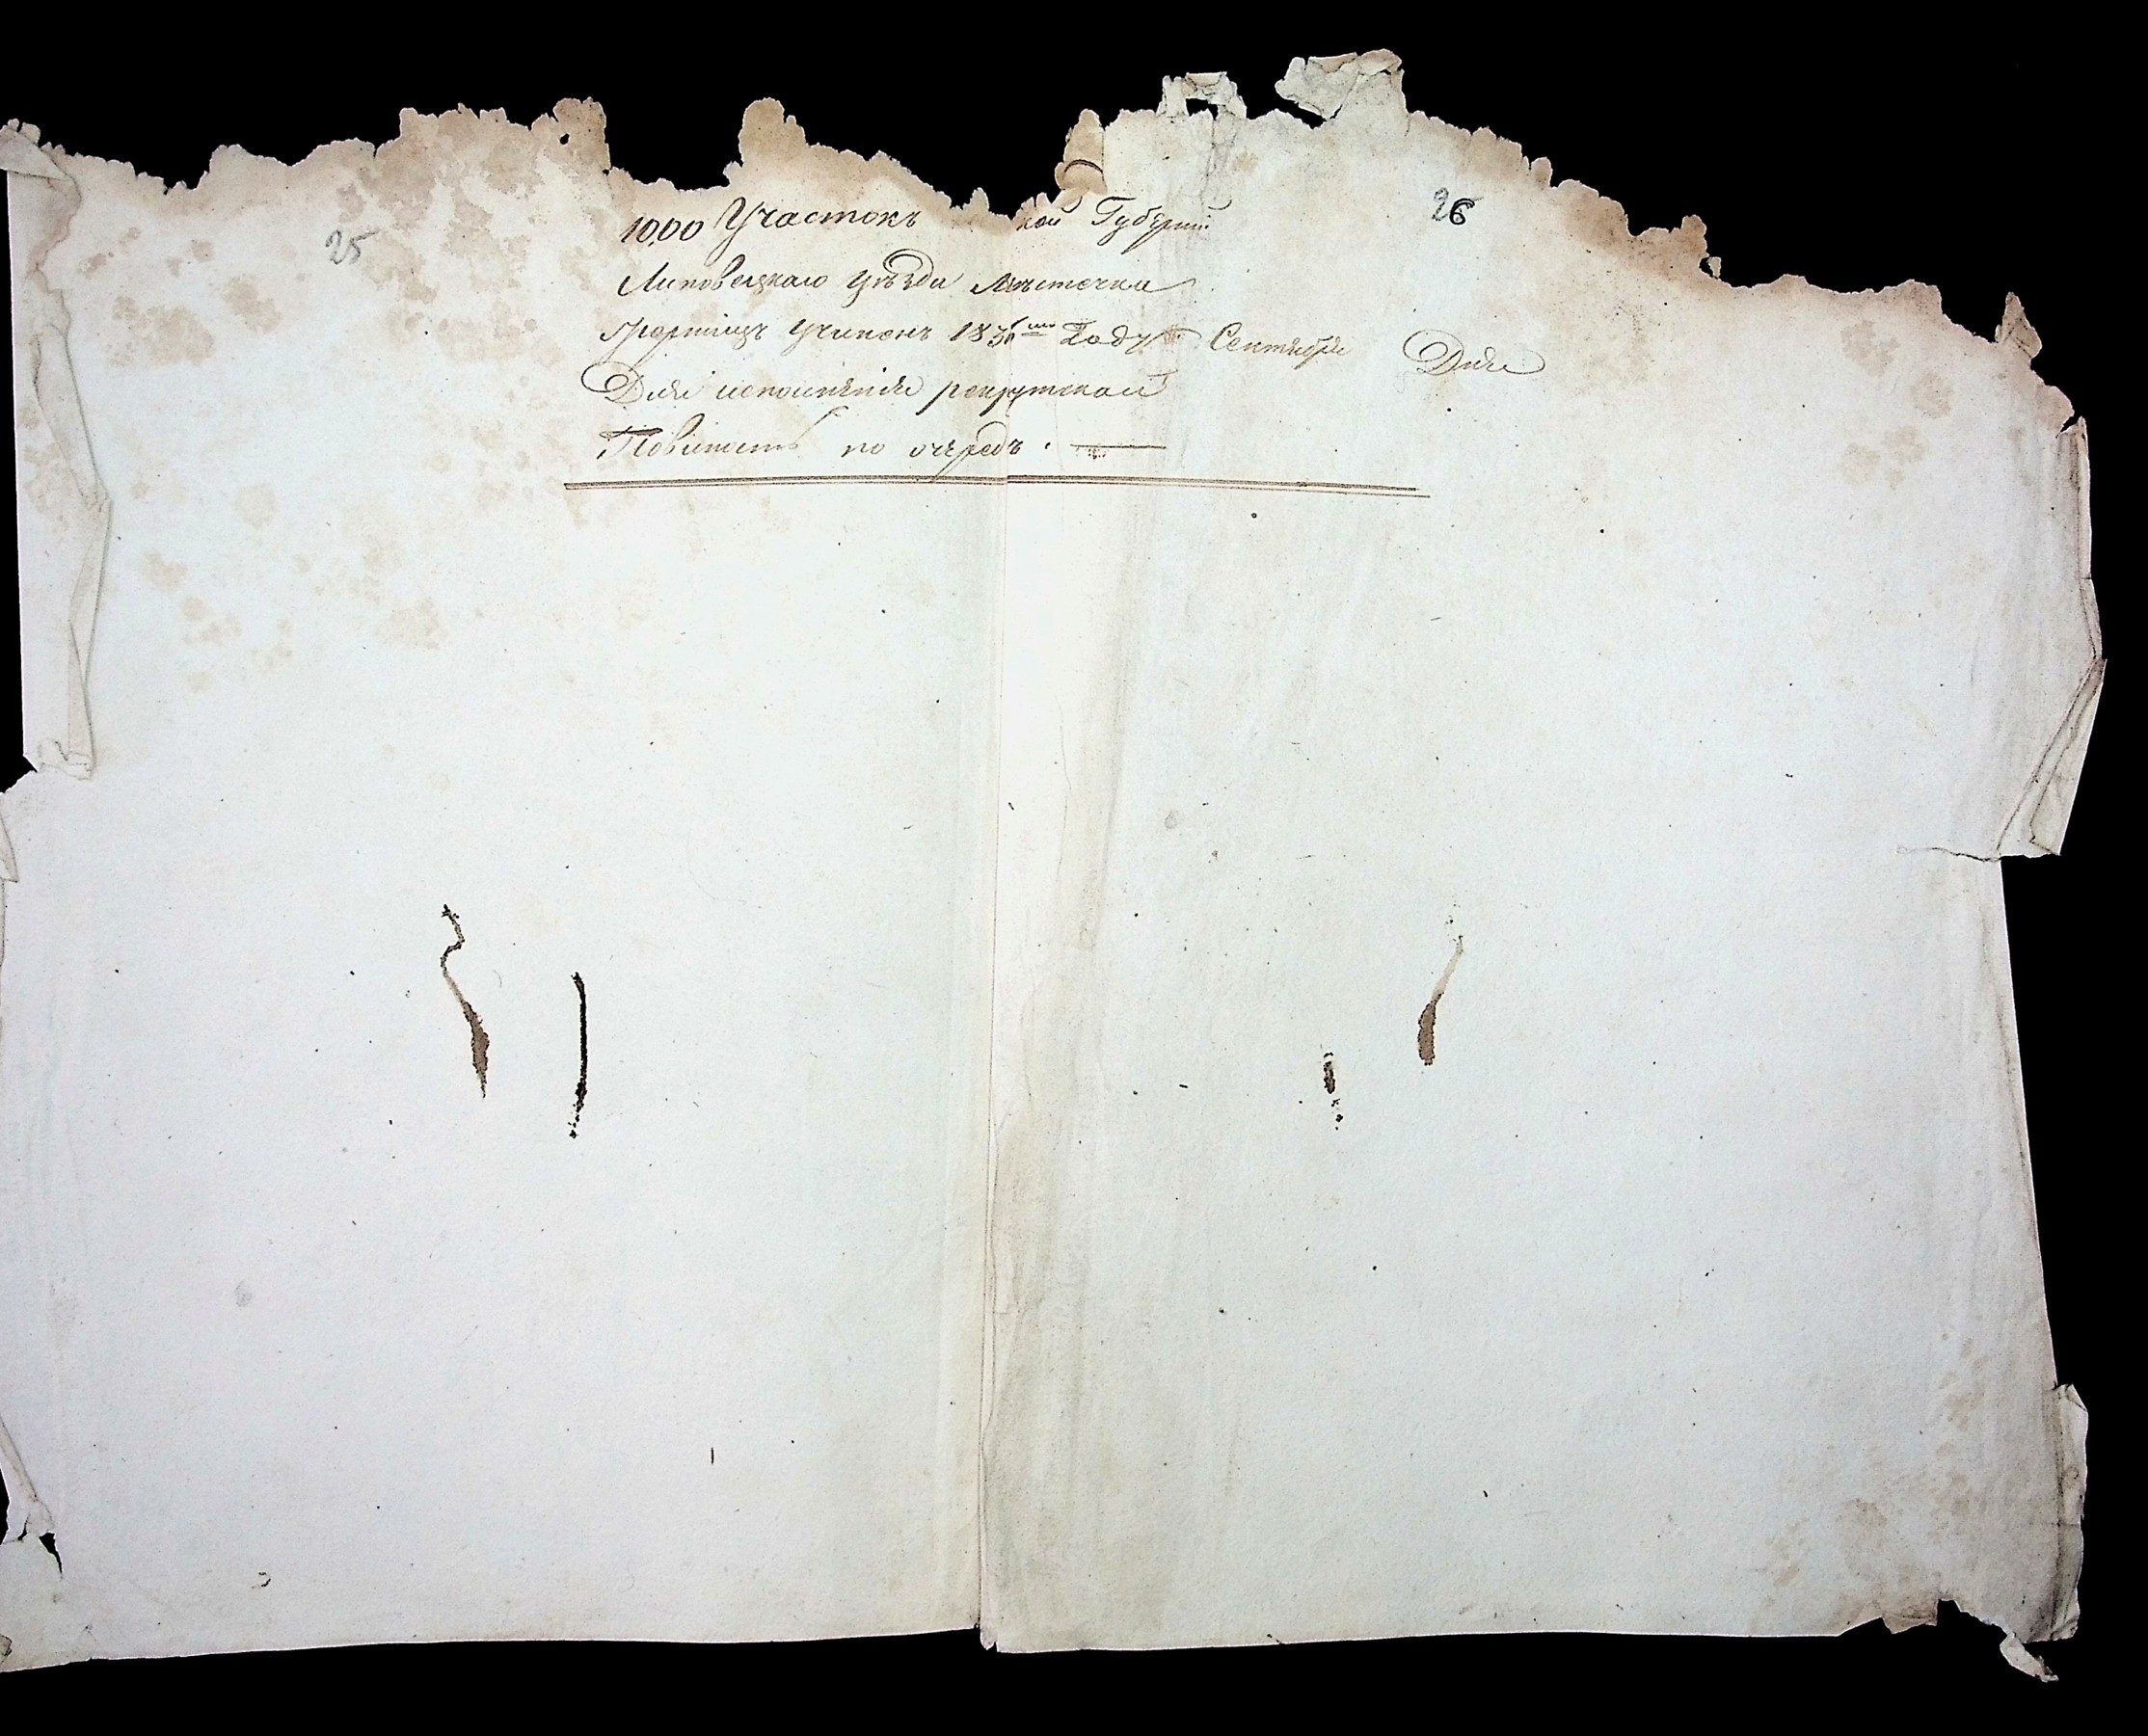 25
26
1000 Участокъ кой Губерніи
Липовецкаго уѣзда мѣстечка
учиненъ году Сентября Дня
Для исполненія рекрутской
Повиность по очередѣ